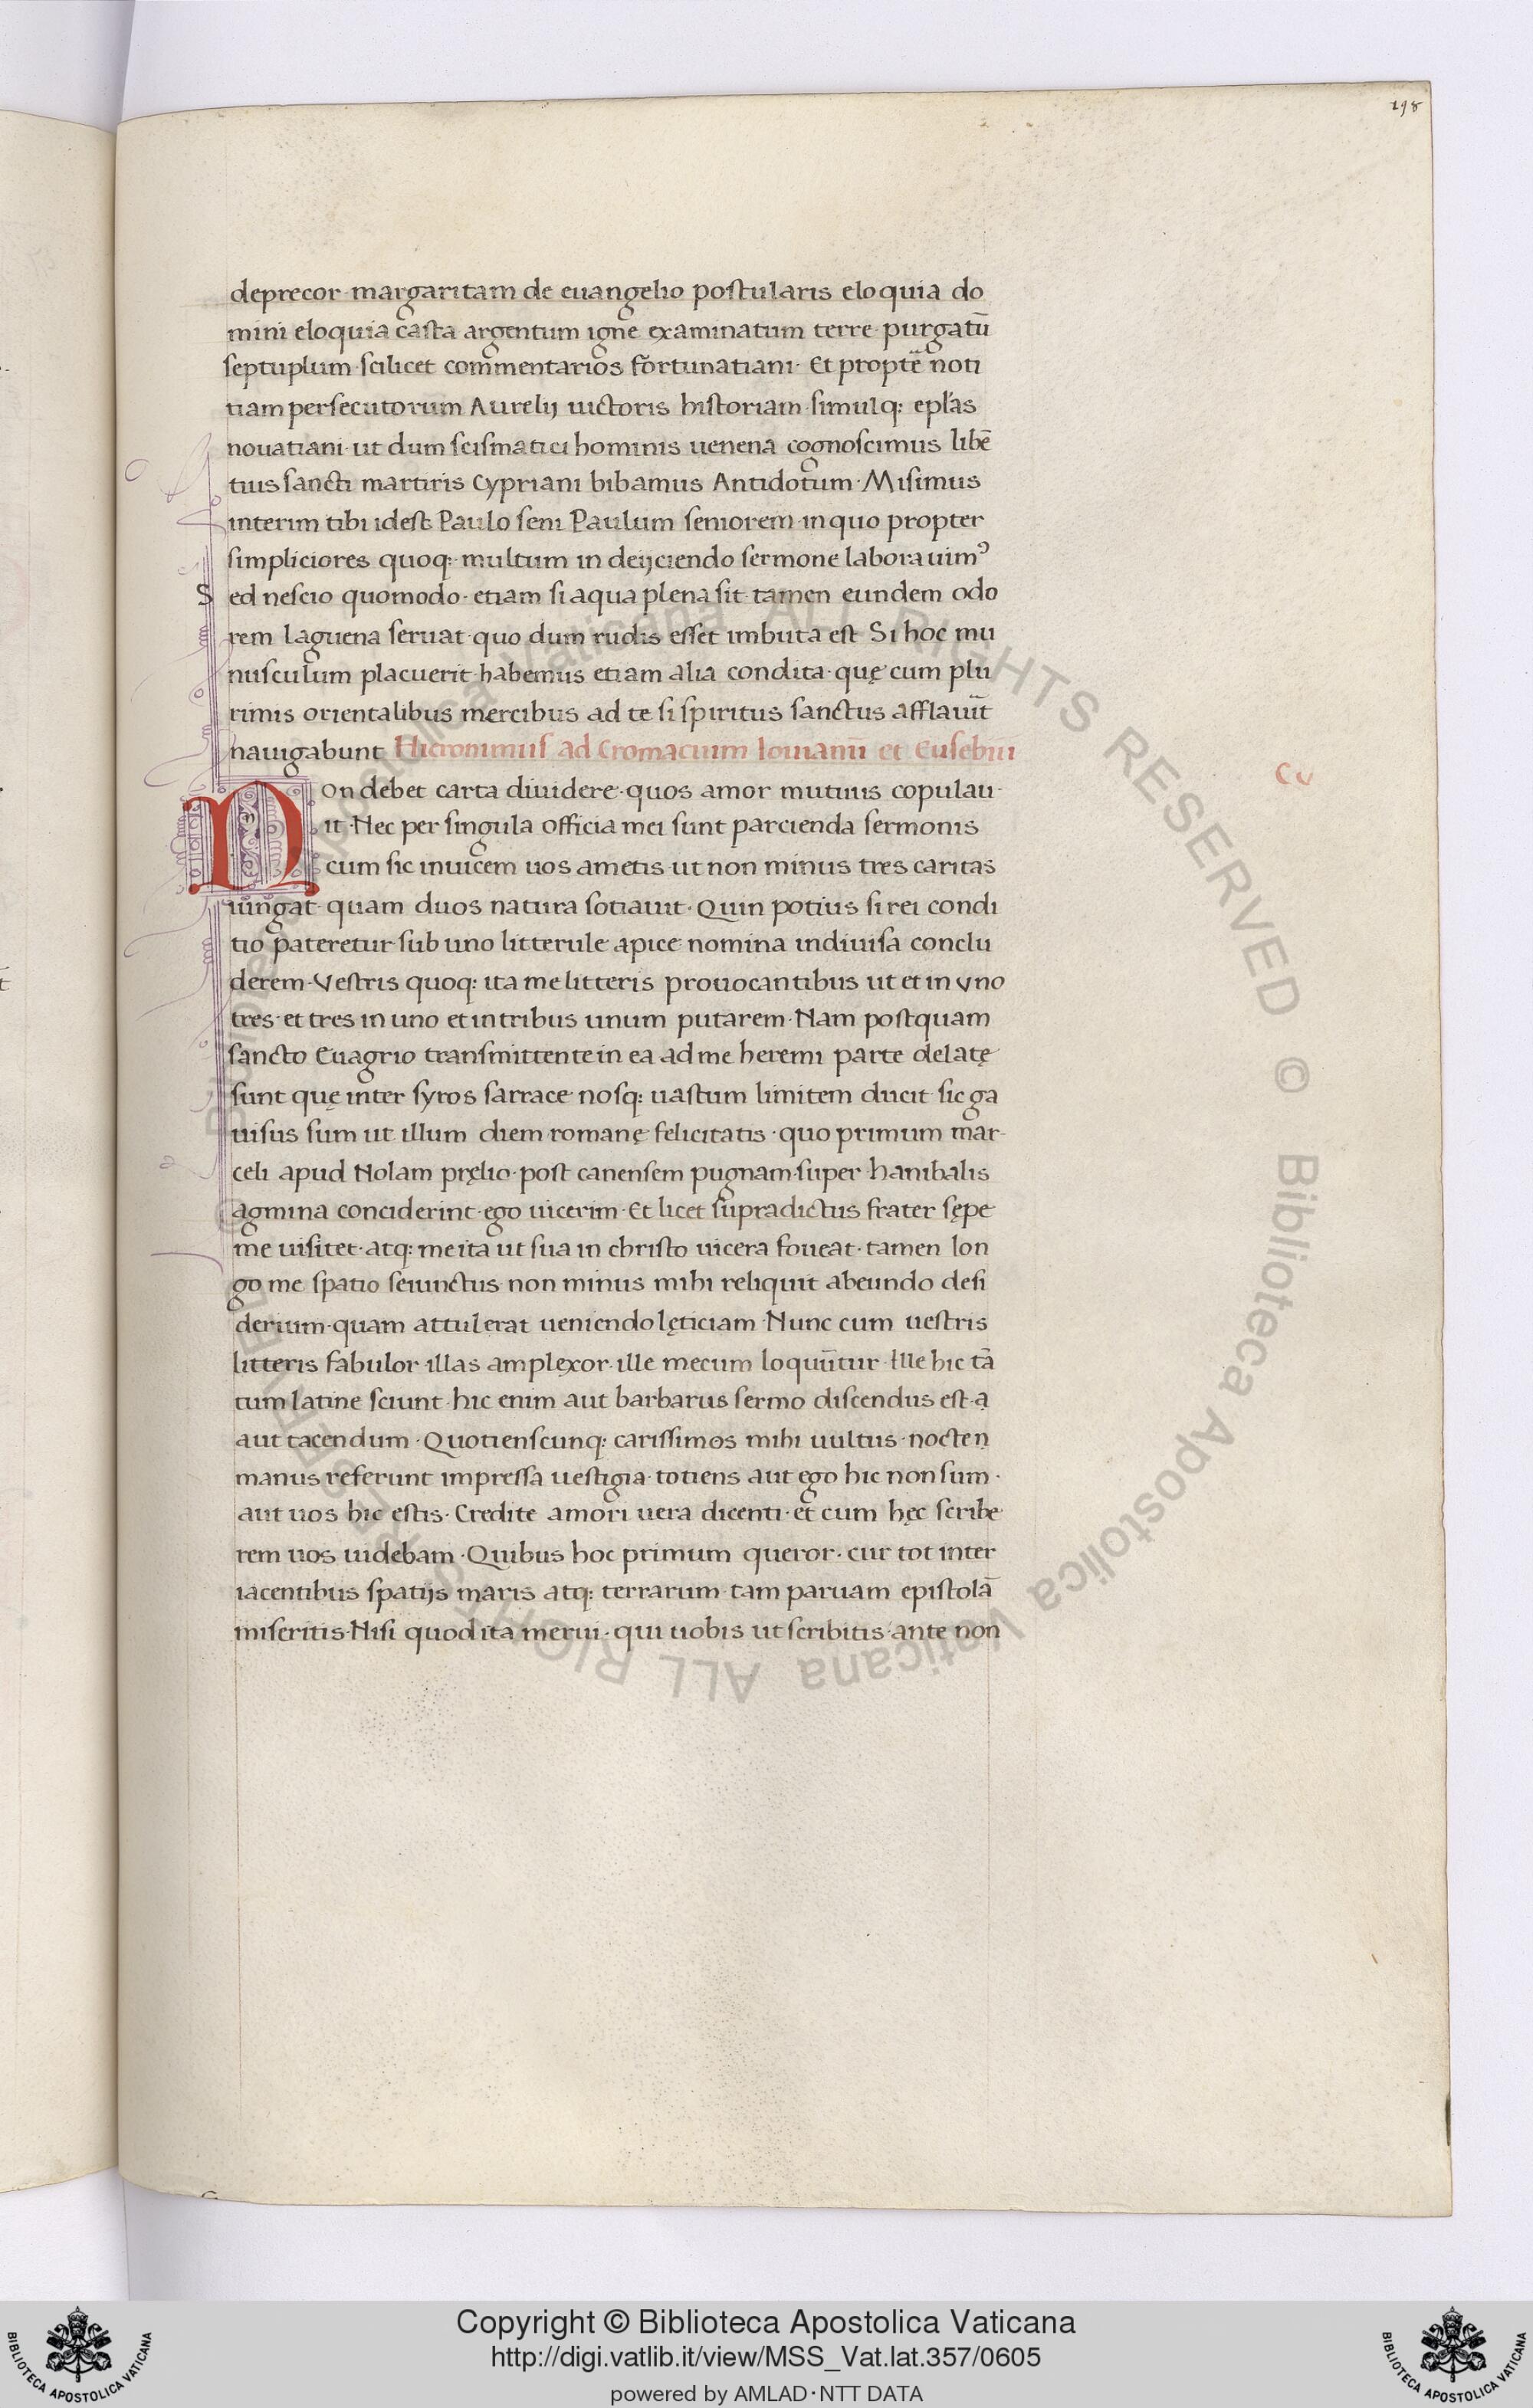 298
deprecor · margaritam de euangelio postularis eloquia do
mini eloquia casta argentum igne examinatum terre purgatū
septuplum · scilicet commentarios fortunatiani · Et proptē noti
tiam persecutorum Aurelij uictoris historiam · simulq; epl̄as
nouatiani · ut dum scismatici hominis uenena cognoscimus libē
tius sancti martiris Cypriani bibamus Antidotum · Misimus
interim tibi idest Paulo seni Paulum seniorem · in quo propter
simpliciores quoq; multum in deijciendo sermone laborauimꝰ
Sed nescio quomodo · etiam si aqua plena sit · tamen eundem odo
rem laguena seruat · quo dum rudis esset imbuta est Si hoc mu
nusculum placuerit · habemus etiam alia condita · quę cum plu
rimis orientalibus mercibus ad te si spiritus sanctus afflauīt
nauigabunt Hieronimus ad Cromacium Iouianū et Eusebiū
CV
Non debet carta diuidere · quos amor mutuus copulau
it · Nec per singula officia mei sunt parcienda sermonis
cum sic inuicem uos ametis · ut non minus tres caritas
iungat · quam duos natura sotiauit · Quin potius si rei condi
tio pateretur · sub uno litterule apice nomina indiuisa conclu
derem · Vestris quoq; ita me litteris prouocantibus ut et in vno
tres · et tres in uno et in tribus unum putarem · Nam postquam
sancto Euagrio transmittente in ea ad me heremi parte delatę
sunt quę inter syros sarrace nosq; uastum limitem ducit · sic ga
uisus sum ut illum diem romanę felicitatis · quo primum mar
celi apud Nolam pręlio · post canensem pugnam · super hanibalis
agmina conciderint · ego uicerim · Et licet supradictus frater sępe
me uisitet · atq; me ita ut sua in christo uicera foueat · tamen lon
go me spatio seiunctus · non minus mihi reliquit abeundo desi
derium · quam attulerat ueniendo lęticiam · Nunc cum uestris
litteris fabulor · illas amplexor · ille mecum loquūtur · Ille hic tā
tum latine sciunt · hic enim aut barbarus sermo discendus est · a
aut tacendum · Quotienscunq; carissimos mihi uultus · nocten
manus referunt impressa uestigia · totiens aut ego hic non sum ·
aut uos hic estis · Credite amori uera dicenti · et cum hęc scribe
rem uos uidebam · Quibus hoc primum queror · cur tot inter
iacentibus spatijs maris atq; terrarum · tam paruam epistolā
miseritis · Nisi quod ita merui · qui uobis ut scribitis · ante non
Copyright © Biblioteca Apostolica Vaticana
http://digi.vatlib.it/view/MSS_Vat.lat.357/0605
powered by AMLAD · NTT DATA
BIBLIOTECA APOSTOLICA VATICANA
BIBLIOTECA APOSTOLICA VATICANA